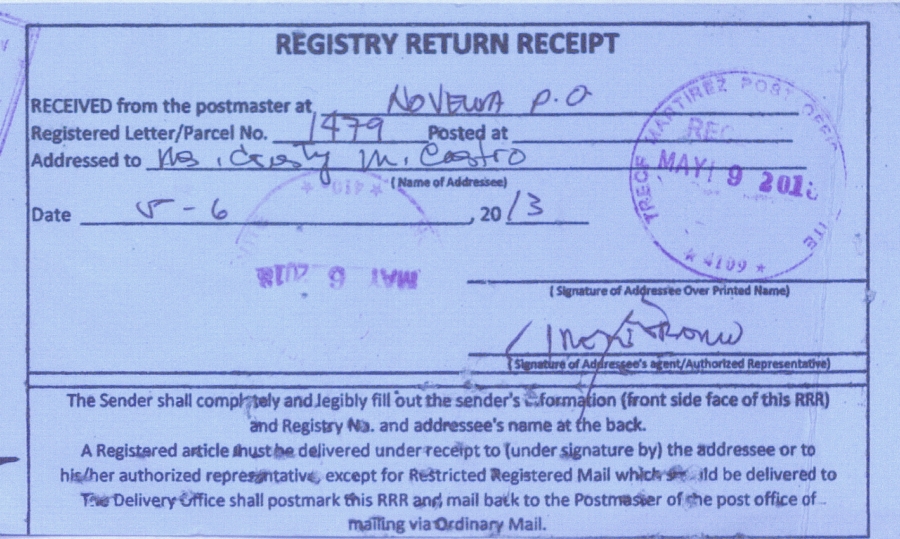 REGISTRY RETURN RECEIPT
RECEIVED from the postmaster at NOVELTA P.O
Registered Letter/Parcel No. 1479 Posted at
Addressed to Ms. Cristy M. Castro
(Name of Addressee)
Date 5-6, 20/3
TRECE MARTIREZ POST OFFICE
REC
MAY 9 201
* 4109 *
MAY 6 201
(Signature of Addressee Over Printed Name)
(Signature of Addressee's agent/Authorized Representative)
The Sender shall completely and legibly fill out the sender's information (front side face of this RRR)
and Registry No. and addressee's name at the back.
A Registered article must be delivered under receipt to (under signature by) the addressee or to
his/her authorized representative, except for Restricted Registered Mail which should be delivered to
The Delivery Office shall postmark this RRR and mail back to the Postmaster of the post office of
mailing via Ordinary Mail.